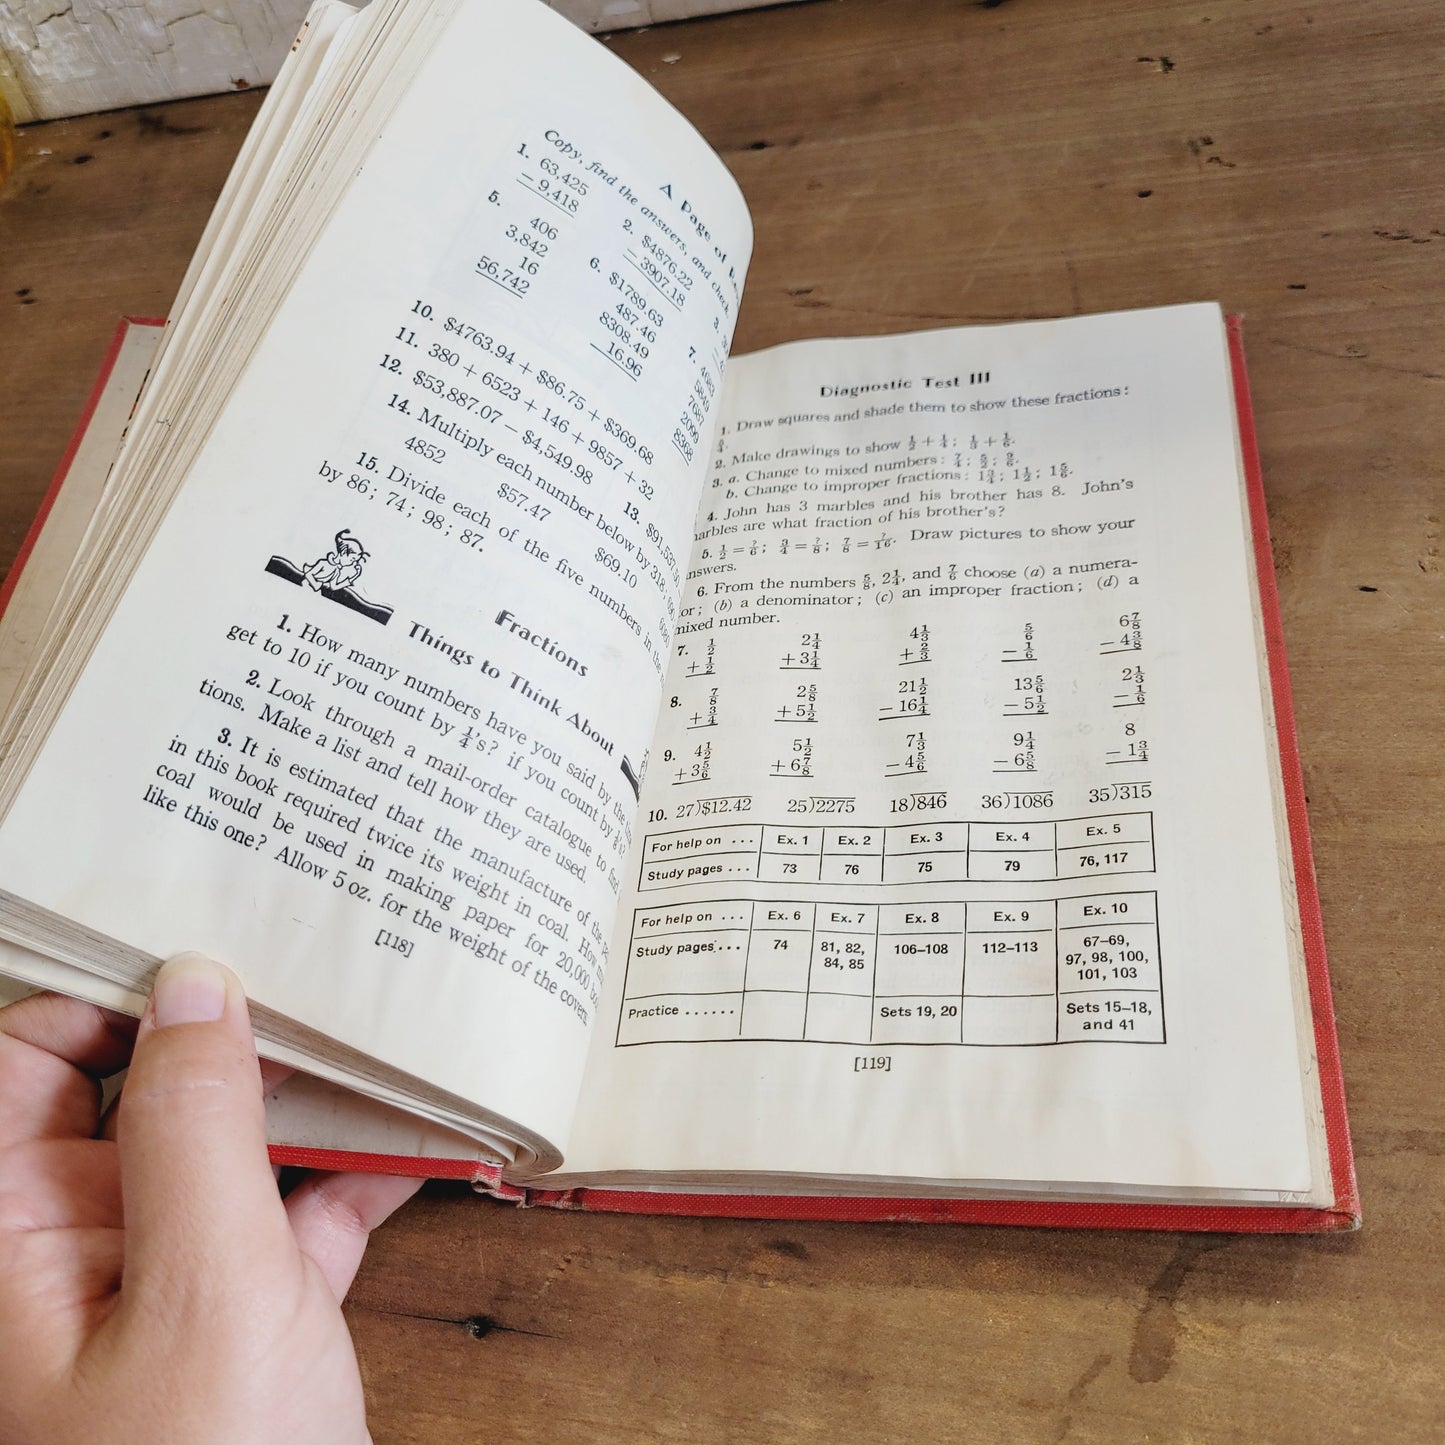 A Page of
Copy, find the answers, and check.
1. 63,425
− 9,418
2. $4876.22
− 3907.18
3.
5. 406
3,842
16
56,742
6. $1789.63
487.46
8308.49
16.96
7. 4683
5849
7687
2099
8368
10. $4763.94 + $86.75 + $369.68
11. 380 + 6523 + 146 + 9857 + 32
12. $53,887.07 − $4,549.98
13. $91,537.50
14. Multiply each number below by 318;
4852 $57.47 $69.10
15. Divide each of the five numbers in the
by 86; 74; 98; 87.
Fractions
Things to Think About
1. How many numbers have you said by the time
get to 10 if you count by ¼'s? if you count by ⅛'s?
2. Look through a mail-order catalogue to find
tions. Make a list and tell how they are used.
3. It is estimated that the manufacture of the
in this book required twice its weight in coal. How
coal would be used in making paper for 20,000
like this one? Allow 5 oz. for the weight of the covers.
[118]
Diagnostic Test III
1. Draw squares and shade them to show these fractions:
2. Make drawings to show ½ + ¼; ⅓ + ⅙.
3. a. Change to mixed numbers: 7/4; 5/2; 9/6.
b. Change to improper fractions: 1¾; 1½; 1⅚.
4. John has 3 marbles and his brother has 8. John's
arbles are what fraction of his brother's?
5. ½ = ?/6; ¾ = ?/8; ⅞ = ?/16. Draw pictures to show your
nswers.
6. From the numbers ⅝, 2¼, and 7/6 choose (a) a numera-
or; (b) a denominator; (c) an improper fraction; (d) a
mixed number.
7. ½ 2¼ 4⅓ ⅚ 6⅞
+ ½ + 3¼ + ⅔ − ⅙ − 4⅜
8. ⅞ 2⅝ 21½ 13⅚ 2⅓
+ ¾ + 5½ − 16¼ − 5½ − ⅙
9. 4½ 5½ 7⅓ 9¼ 8
+ 3⅚ + 6⅞ − 4⅚ − 6⅝ − 1¾
10. 27)$12.42 25)2275 18)846 36)1086 35)315
For help on ... Ex. 1 Ex. 2 Ex. 3 Ex. 4 Ex. 5
Study pages ... 73 76 75 79 76, 117
For help on ... Ex. 6 Ex. 7 Ex. 8 Ex. 9 Ex. 10
Study pages ... 74 81, 82, 106–108 112–113 67–69,
84, 85 97, 98, 100,
101, 103
Practice ...... Sets 19, 20 Sets 15–18,
and 41
[119]